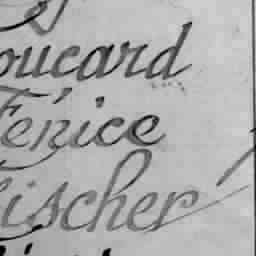 oucard
Fénice
ischer